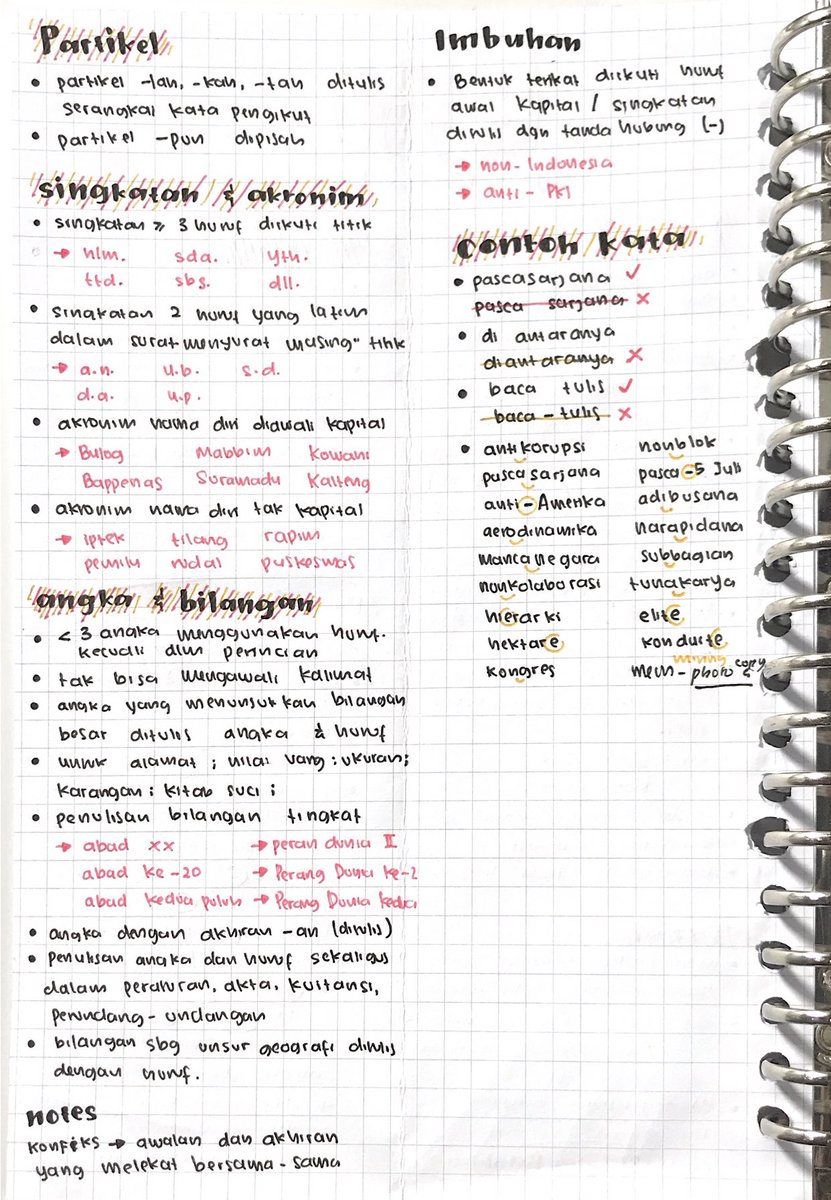 Partikel
• partikel -lah, -kah, -tah ditulis
serangkai kata pengikut
• partikel -pun dipisah
singkatan & akronim
• singkatan ≥ 3 huruf diikuti titik
→ hlm. sda. yth.
ttd. sbs. dll.
• singkatan 2 huruf yang lazim
dalam surat-menyurat masing" titik
→ a.n. u.b. s.d.
d.a. u.p.
• akronim nama diri diawali kapital
→ Bulog Mabbim Kowani
Bappenas Suramadu Kalteng
• akronim nama diri tak kapital
→ iptek tilang rapim
pemilu rudal puskesmas
angka & bilangan
• < 3 angka menggunakan huruf.
kecuali dlm perincian
• tak bisa mengawali kalimat
• angka yang menunjukkan bilangan
besar ditulis angka & huruf
• untuk alamat ; nilai uang ; ukuran ;
karangan ; kitab suci ;
• penulisan bilangan tingkat
→ abad XX → peran dunia II
abad ke-20 → Perang Dunia ke-2
abad kedua puluh → Perang Dunia kedua
• angka dengan akhiran -an (ditulis)
• penulisan angka dan huruf sekaligus
dalam peraturan, akta, kuitansi,
perundang-undangan
• bilangan sbg unsur geografi ditulis
dengan huruf.
notes
konfiks → awalan dan akhiran
yang melekat bersama-sama
Imbuhan
• Bentuk terikat diikuti huruf
awal kapital / singkatan
ditulis dgn tanda hubung (-)
→ non-Indonesia
→ anti-PKI
contoh kata
• pascasarjana ✓
pasca sarjana ✗
• di antaranya
diantaranya ✗
• baca tulis ✓
baca-tulis ✗
• antikorupsi nonblok
pascasarjana pasca-5 Juli
anti-Amerika adibusana
aerodinamika narapidana
mancanegara subbagian
nonkolaborasi tunakarya
hierarki elite
hektare konduite
kongres mem-photo copy
mining